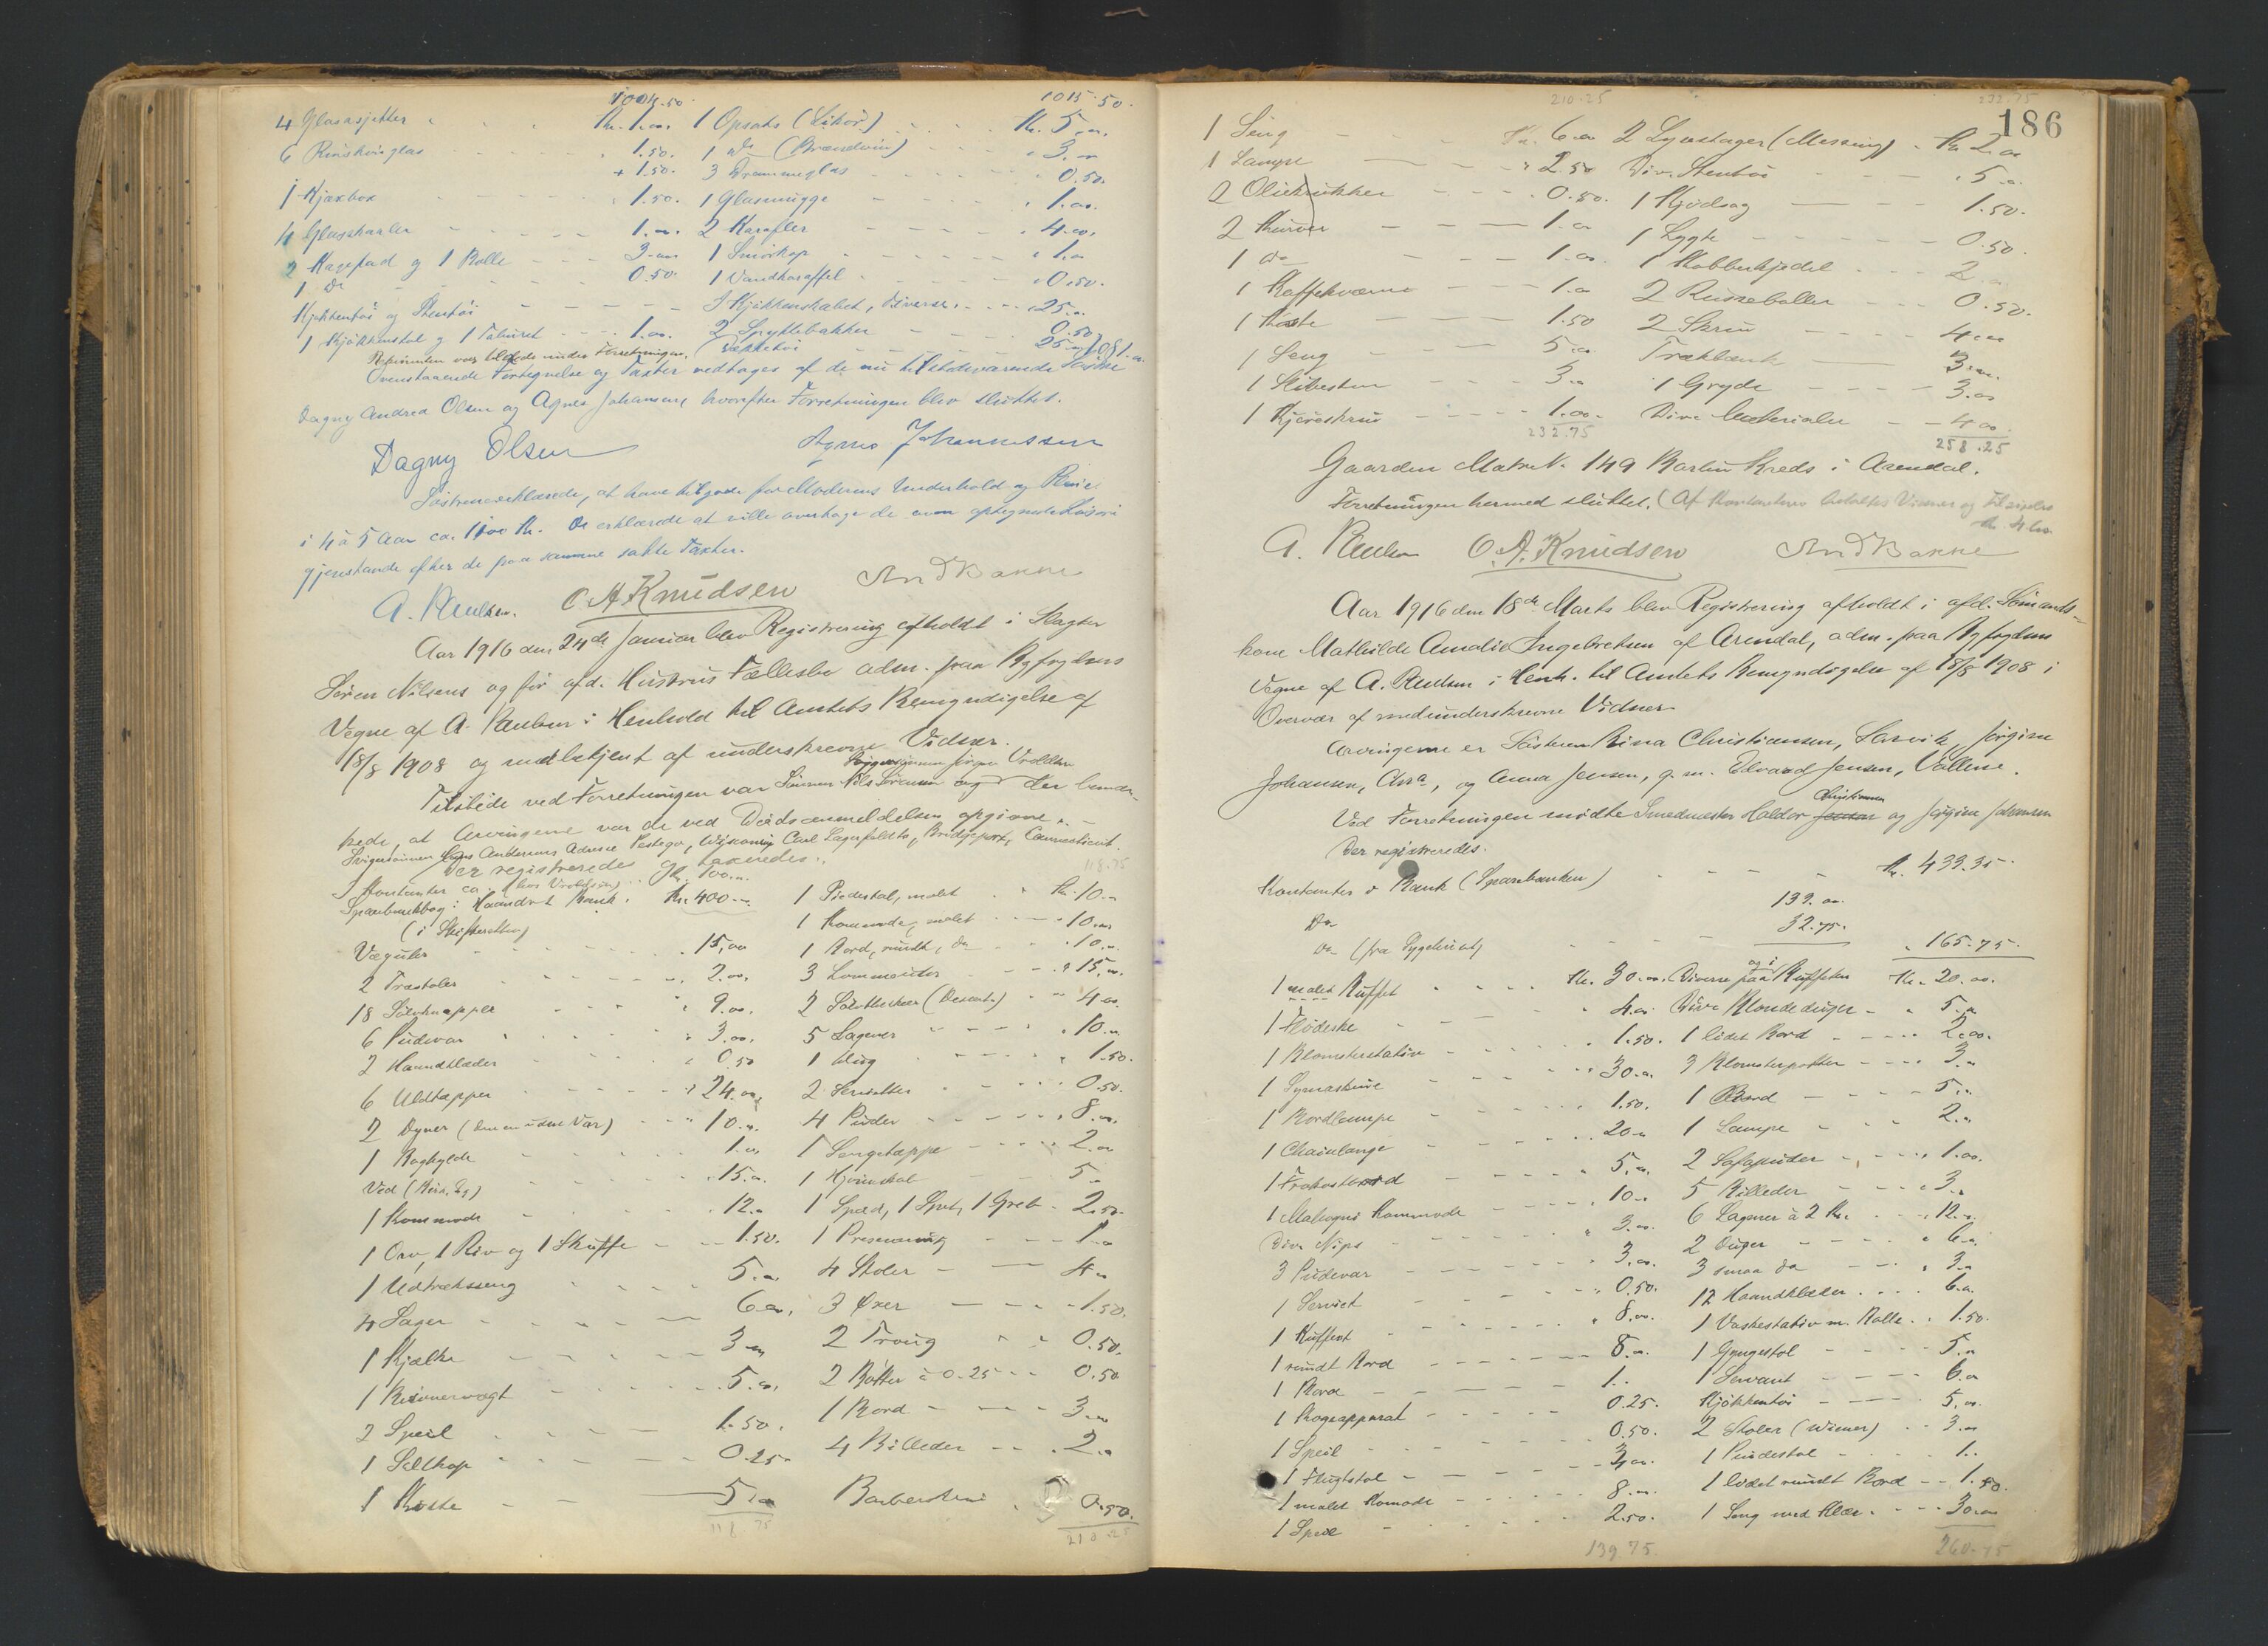 1004.50 1015.50.
4 Glasasjetter Kr. 1.00. 1 Opsats (Likør) Kr. 5.00.
6 Rinskvinglas 1.50. 1 do (Brændevin) 3.00
+ 1.50. 3 Drammeglas 0.50.
1 Kjæxbox 1.50. 1 Glasmugge 1.00.
4 Glasskaaler 1.00. 2 Karafler 4.00.
2 Kagefad og 1 Bolle 3.00 1 Smørkop 1.00
1 do 0.50. 1 Vandkaraffel 0.50.
Kjøkkentøi og Stentøi I Kjøkkenskabet, diverse. 25.00
1 Kjøkkenstol og 1 Taburet 1.00. 2 Spyttebakker 0.50
Dækketøi 25.00 1051.00
Rekvirenten var tilstede under Forretningen.
Ovenstaaende Fortegnelse og Taxter vedtoges af de nu tilstedeværende Søstre
Dagny Andrea Olsen og Agnes Johansen, hvorefter Forretningen blev sluttet.
Dagny Olsen Agnes Johannessen
Søstrene erklærede, at have tilgode for Moderens Underhold og Pleie
i 4 à 5 Aar ca. 1100 Kr. De erklærede at ville overtage de oven optegnede Løsøre
gjenstande efter de paa samme satte Taxter.
A. Paulsen. O. A. Knudsen And Bakke
Aar 1916 den 24de Januar blev Registrering afholdt i Slagter
Søren Nilsens og før afd. Hustrus Fællesbo adm. paa Byfogdens
Vegne af A. Paulsen i Henhold til Amtets Bemyndigelse af
18/8 1908 og medbetjent af underskrevne Vidner.
Tilstede ved Forretningen var Sønnen Nils Sørensen og Svigersønnen Jørgen Vroldsen der bemær-
kede, at Arvingerne var de ved Dødsanmeldelsen opgivne.
Svigersønnen Lars Andersens Adresse Westego, Wisconsin Carl Lagerfeldts, Bridgeport, Connecticut.
Der registreredes og taxeredes:
I Kontanter ca. (hos Vroldsen) Kr. 100.00 118.75
Sparebankbog i Haandv.s Bank. Kr. 400.00 1 Piedestal, malet Kr. 10.00
(i Skifteretten) 1 Kommode, malet 10.00
Væguhr 15.00 1 Bord, rundt, do 10.00
2 Træstoler 2.00. 3 Lommeuhr 15.00.
18 Sølvknapper 9.00. 2 Sølvskeer (Dessert) 4.00.
6 Pudevar 3.00. 5 Lagener 10.00
2 Haandklæder 0.50 1 Dug 1.50.
6 Uldtæpper 24.00. 2 Servietter 0.50.
2 Dyner (den en uden Var) 10.00. 4 Puder 8.00.
1 Boghylde 1.00 1 Sengetæppe 2.00
Ved (Birk. ) 15.00. 1 Hjørneskab 5.00
1 Kommode 12.00 1 Spad, 1 Spet, 1 Greb 2.50.
1 Orv, 1 Riv og 1 Skuffe 1.50. 1 Presenning 1.00
1 Udtræksseng 5.00. 4 Stoler 4.00
4 Sager 6.00. 3 Øxer 1.50.
1 Kjælke 3.00 2 Traug 0.50.
1 Bismervægt 5.00. 2 Bøtter à 0.25 0.50
2 Speil 1.50. 1 Bord 3.00
1 Seltkop 0.25 4 Billeder 2.00
1 Kiste 5.00 Barberskrin 0.50.
118 75 210.25
186
210.25 232.75
1 Seng Kr. 6.00 2 Lysestager (Messing) Kr 2.00
1 Lampe 2.50 Div. Stentøi 5.00.
2 Oliekrukker 0.50. 1 Kjødsag 1.50.
2 Kurver 1.00 1 Lygte 0.50.
1 do 1.00. 1 Kobberkjedel 2.00
1 Kaffekværn 1.00 2 Russeballer 0.50.
1 Kiste 1.50 2 Skrin 4.00
1 Seng 5.00 Træblænk 3.00.
1 Slibesten 3.00 1 Gryde 3.00
1 Kjøreskrin 1.00. Diverse Materialer 4.00.
232.75 258.25
Gaarden Matr. N. 149 Barbu Kreds i Arendal.
Forretningen hermed sluttet. (Af Kontanterne betaltes Vidner og Tilsigelse Kr. 4.60.
A. Paulsen O. A. Knudsen And Bakke
Aar 1916 den 18de Marts blev Registrering afholdt i afd. Sømands-
kone Mathilde Amalie Ingebretsen af Arendal, adm. paa Byfogdens
Vegne af A. Paulsen i Henh. til Amtets Bemyndigelse af 18/8 1908 i
Overvær af medunderskrevne Vidner.
Arvingerne er Søsteren Bina Christiansen, Larvik, Jørgine
Johansen, Ass., og Anna Jensen, g. m. Edvard Jensen, Vallene.
Ved Forretningen mødte Smedmester Haldor Christiansen og Jørgine Johansen
Der registreredes.
Kontanter i Bank (Sparebanken) Kr. 433.35.
Do 133.00.
Do (fra Sygehuset) 32.75. 165.75.
1 malet Buffet Kr. 30.00. Diverse paa og i Buffeten Kr. 20.00.
1 Flødeske 4.00. Div. Blondeduger 5.00
1 Blomsterstativ 1.50. 1 lidet Bord 2.00.
1 Symaskine 30.00. 3 Blomsterpotter 3.00
1 Bordlampe 1.50. 1 Bord 5.00
1 Chaiselonge 20.00 1 Lampe 2.00
1 Frokostbord 5.00. 2 Sofapuder 1.00.
1 Mahogni Kommode 10.00 5 Billeder 3.00
Div. Nips 3.00. 6 Lagener à 2 Kr. 12.00
3 Pudevar 3.00. 2 Duger 6.00
1 Serviet 0.50. 3 smaa do 3.00
1 Kuffert 8.00. 12 Haandklæder 6.00.
1 rundt Bord 8.00. 1 Vaskestativ m. Balle 1.50.
1 Bord 1.. 1 Gyngestol 5.00
1 Kogeapparat 0.25. 1 Servant 6.00
1 Speil 0.50. Kjøkkentøi 5.00.
1 Flugtstol 3.00. 2 Stoler (Wiener) 3.00
1 malet Komode 8.00. 1 Piedestal 1..
1 Speil 2.50. 1 lidet rundt Bord 1.50.
1 Seng med Klær 30.00
139.75 260.75